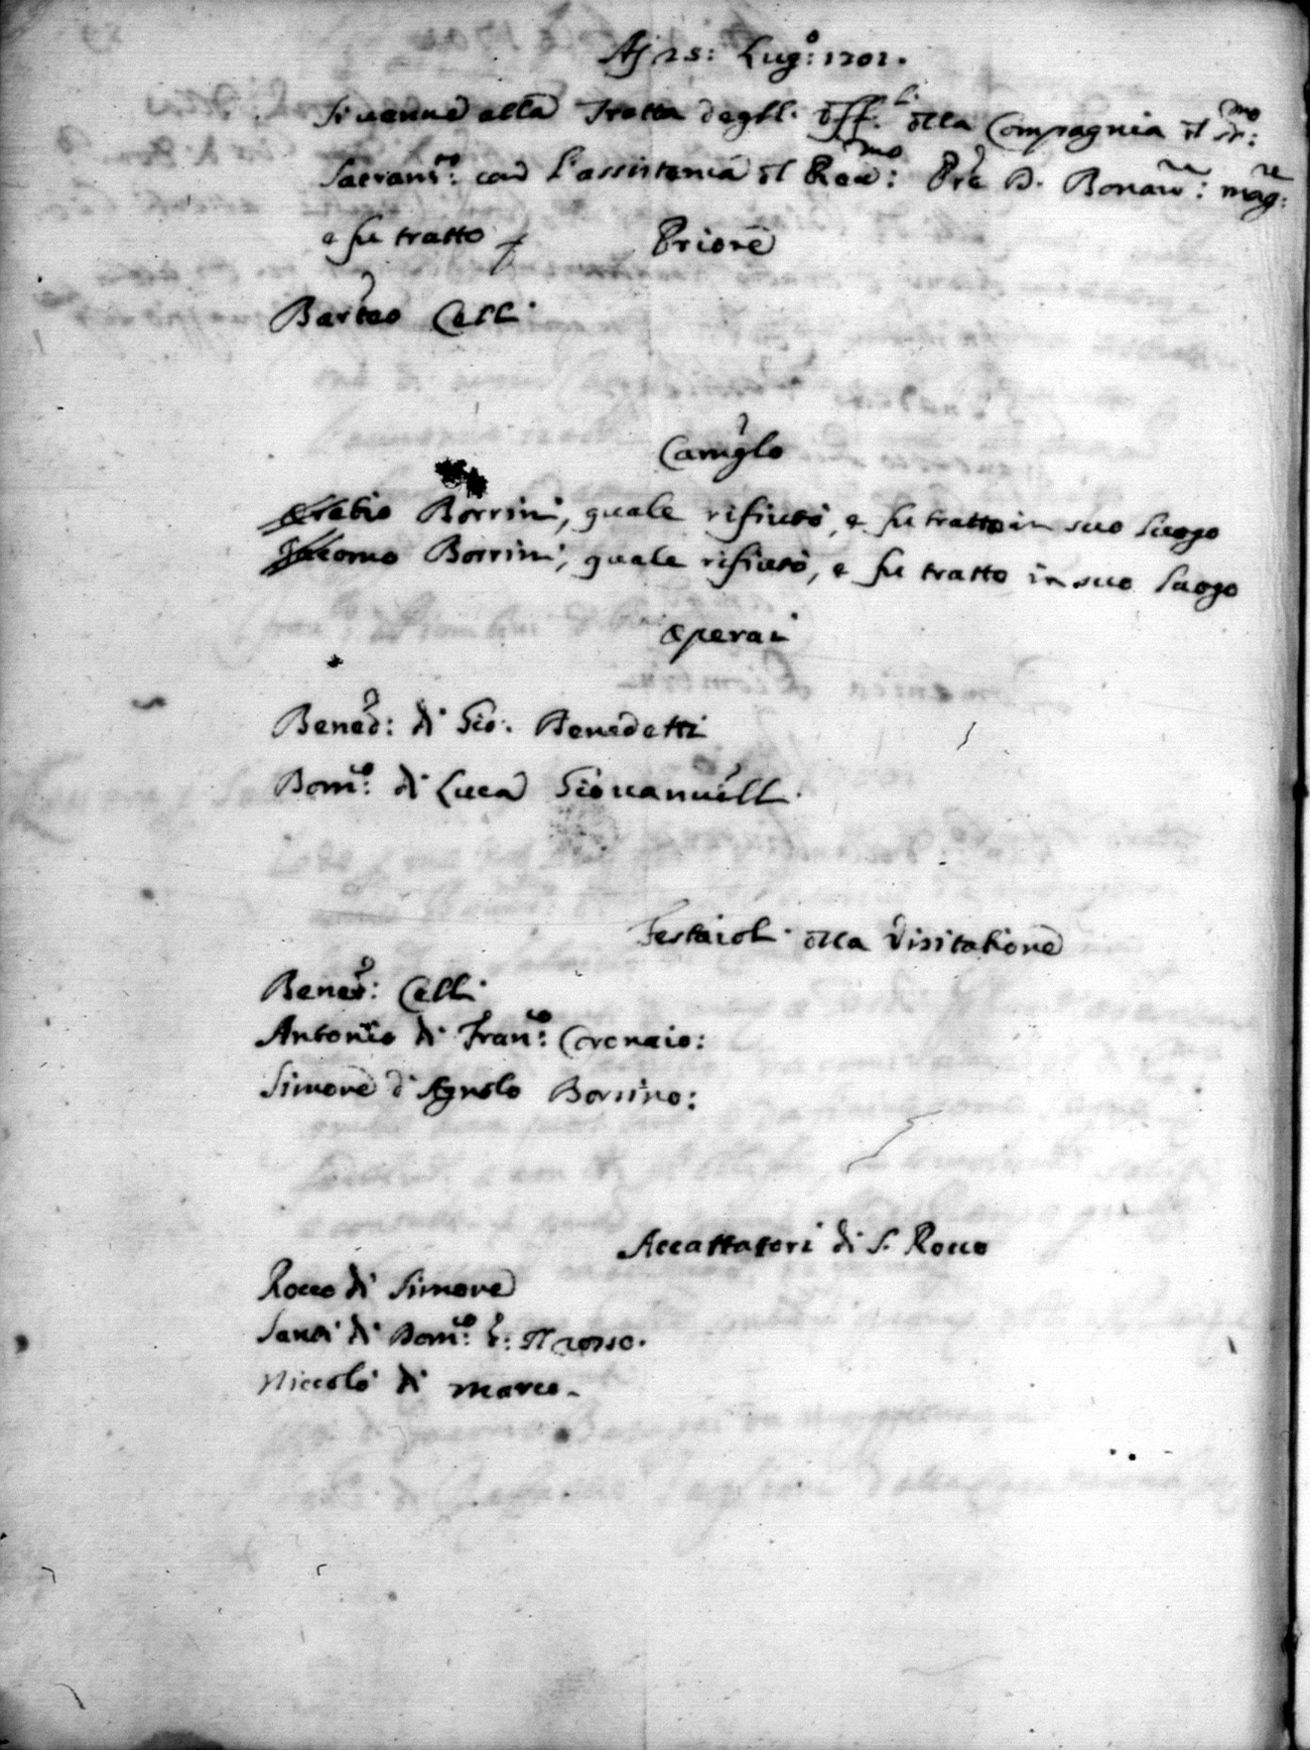 Aj 25: Lug:o 1701.
Si venne alla Tratta degli Off.li della Compagnia del SS:mo
Sacram:to con l'assistenza del Reu:mo Pre D. Bonau:re Mag:re
e fu tratto Priore
Barteo Celli
Camglo
Oratio Borrini, quale rifiutò, e fu tratto in suo luogo
Jacomo Borrini, quale rifiutò, e fu tratto in suo luogo
Operai
Bened: di Gio: Benedetti
Dom:co di Luca Giovannelli
Festaioli della Visitatione
Bened: Celli
Antonio di Fran:co Coronaio:
Simone d'Agnolo Borrino:
Accattatori di S. Rocco
Rocco di Simone
Santi di Dom:co d: il rosso.
Niccolò di Marco.